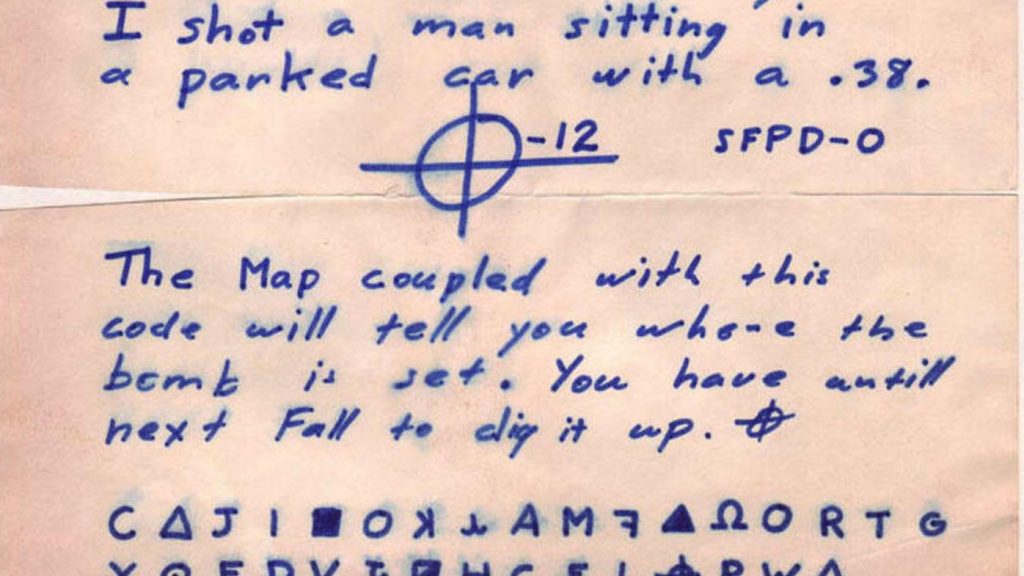 I shot a man sitting in
a parked car with a .38.
-12 SFPD-0
The Map coupled with this
code will tell you whone the
bomb is set. You have untill
next Fall to dig it up. ⌖
C Δ J I ■ O ꓘ ⅄ A M ꟻ ▲ Ω O R T G